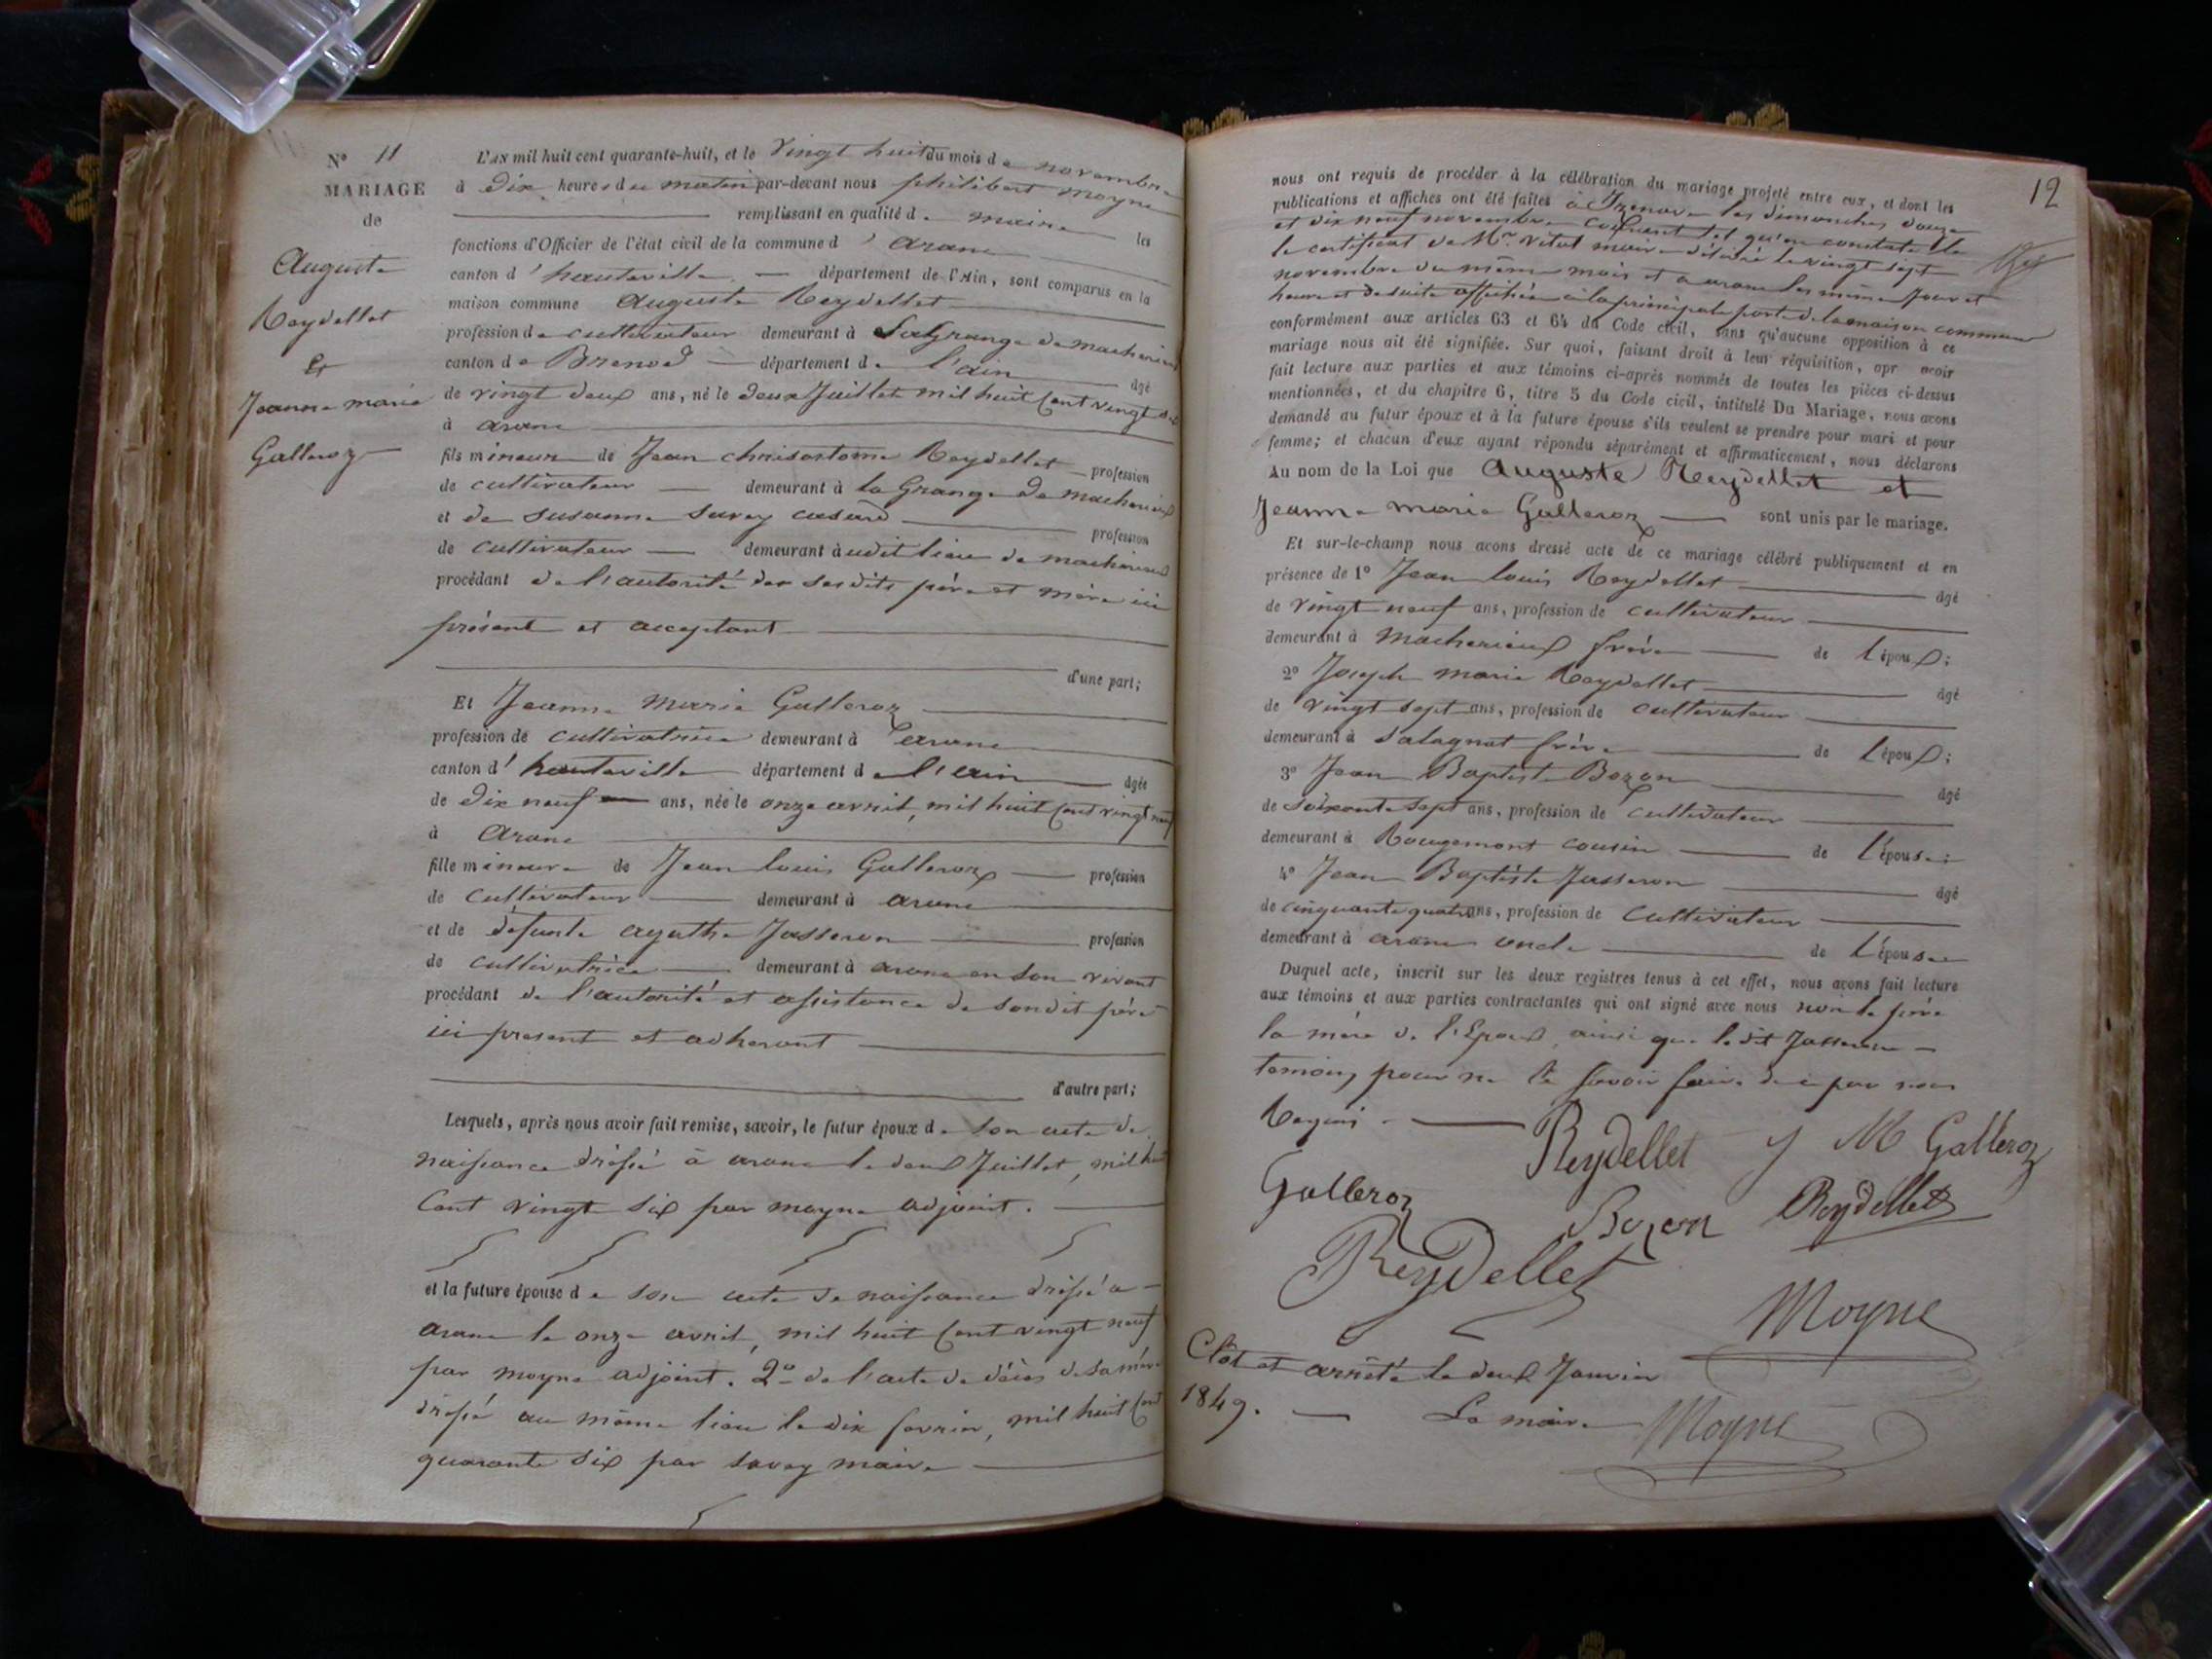 N° 11
MARIAGE
de
Auguste
Reydellet
Et
Jeanne marie
Galleroz
L'AN mil huit cent quarante-huit, et le Vingt huit du mois de novembre
à dix heures du matin par-devant nous philibert moyne
remplissant en qualité de maire les
fonctions d'Officier de l'état civil de la commune d'arane
canton d'hauteville département de l'Ain, sont comparus en la
maison commune Auguste Reydellet
profession de cultivateur demeurant à LaGrange de macherieux
canton de Brenod département de l'ain âgé
de vingt deux ans, né le deux Juillet mil huit Cent vingt six
à arane
fils mineur de Jean chrisostome Reydellet profession
de cultivateur demeurant à la Grange de macherieux
et de Susanne Savey casard profession
de cultivateur demeurant audit lieu de macherieux
procédant de l'autorité des sesdits père et mère ici
présent et acceptant
d'une part;
Et Jeanne Marie Galleroz
profession de cultivatrice demeurant à arane
canton d'hauteville département de l'ain âgée
de dix neuf ans, née le onze avril, mil huit Cent vingt neuf
à Arane
fille mineure de Jean louis Galleroz profession
de Cultivateur demeurant à arane
et de défunte agathe Jasseron profession
de cultivatrice demeurant à arane en son vivant
procédant de l'autorité et assistance de sondit père
ici present et adherant
d'autre part;
Lesquels, après nous avoir fait remise, savoir, le futur époux de son acte de
naissance dréssé à arane le deux Juillet, mil huit
Cent vingt six par moyne adjoint.
et la future épouse de son acte de naissance dréssé a
arane le onze avril, mil huit Cent vingt neuf
par moyne adjoint. 2° de l'acte de décès de sa mère
dréssé au même lieu le dix fevrier, mil huit Cent
quarante six par savey maire
12
nous ont requis de procéder à la célébration du mariage projeté entre eux, et dont les
publications et affiches ont été faites à Izenave les dimanches douze
et dix neuf novembre courant tel qu'en constate le
le certificat de Mr. Vital maire délivré le vingt sept
novembre du même mois et a arane les même Jour et
heure et de suite affichée à la principale porte de la maison commune
conformément aux articles 63 et 64 du Code civil, sans qu'aucune opposition à ce
mariage nous ait été signifiée. Sur quoi, faisant droit à leur réquisition, apr avoir
fait lecture aux parties et aux témoins ci-après nommés de toutes les pièces ci-dessus
mentionnées, et du chapitre 6, titre 5 du Code civil, intitulé Du Mariage, nous avons
demandé au futur époux et à la future épouse s'ils veulent se prendre pour mari et pour
femme; et chacun d'eux ayant répondu séparément et affirmativement, nous déclarons
Au nom de la Loi que Auguste Reydellet et
Jeanne marie Galleroz sont unis par le mariage.
Et sur-le-champ nous avons dressé acte de ce mariage célébré publiquement et en
présence de 1° Jean louis Reydellet âgé
de vingt neuf ans, profession de cultivateur
demeurant à macherieux frère de l'époux;
2° Joseph marie Reydellet âgé
de vingt sept ans, profession de cultivateur
demeurant à Salagnat frère de l'époux;
3° Jean Baptist Bozon âgé
de soixante sept ans, profession de cultivateur
demeurant à Rougemont cousin de l'épouse;
4° Jean Baptiste Jasseron âgé
de cinquante quatre ans, profession de cultivateur
demeurant à arane oncle de l'épouse
Duquel acte, inscrit sur les deux registres tenus à cet effet, nous avons fait lecture
aux témoins et aux parties contractantes qui ont signé avec nous non le père
la mère de l'Epoux, ainsi que le dit Jasseron
temoins pour ne le savoir faire de ce par nous
Requis.
Reydellet J M Galleroz
Galleroz Bozon Reydellet
Reydellet
Moyne
Clôt et arrêté le deux Janvier
1849. Le maire Moyne